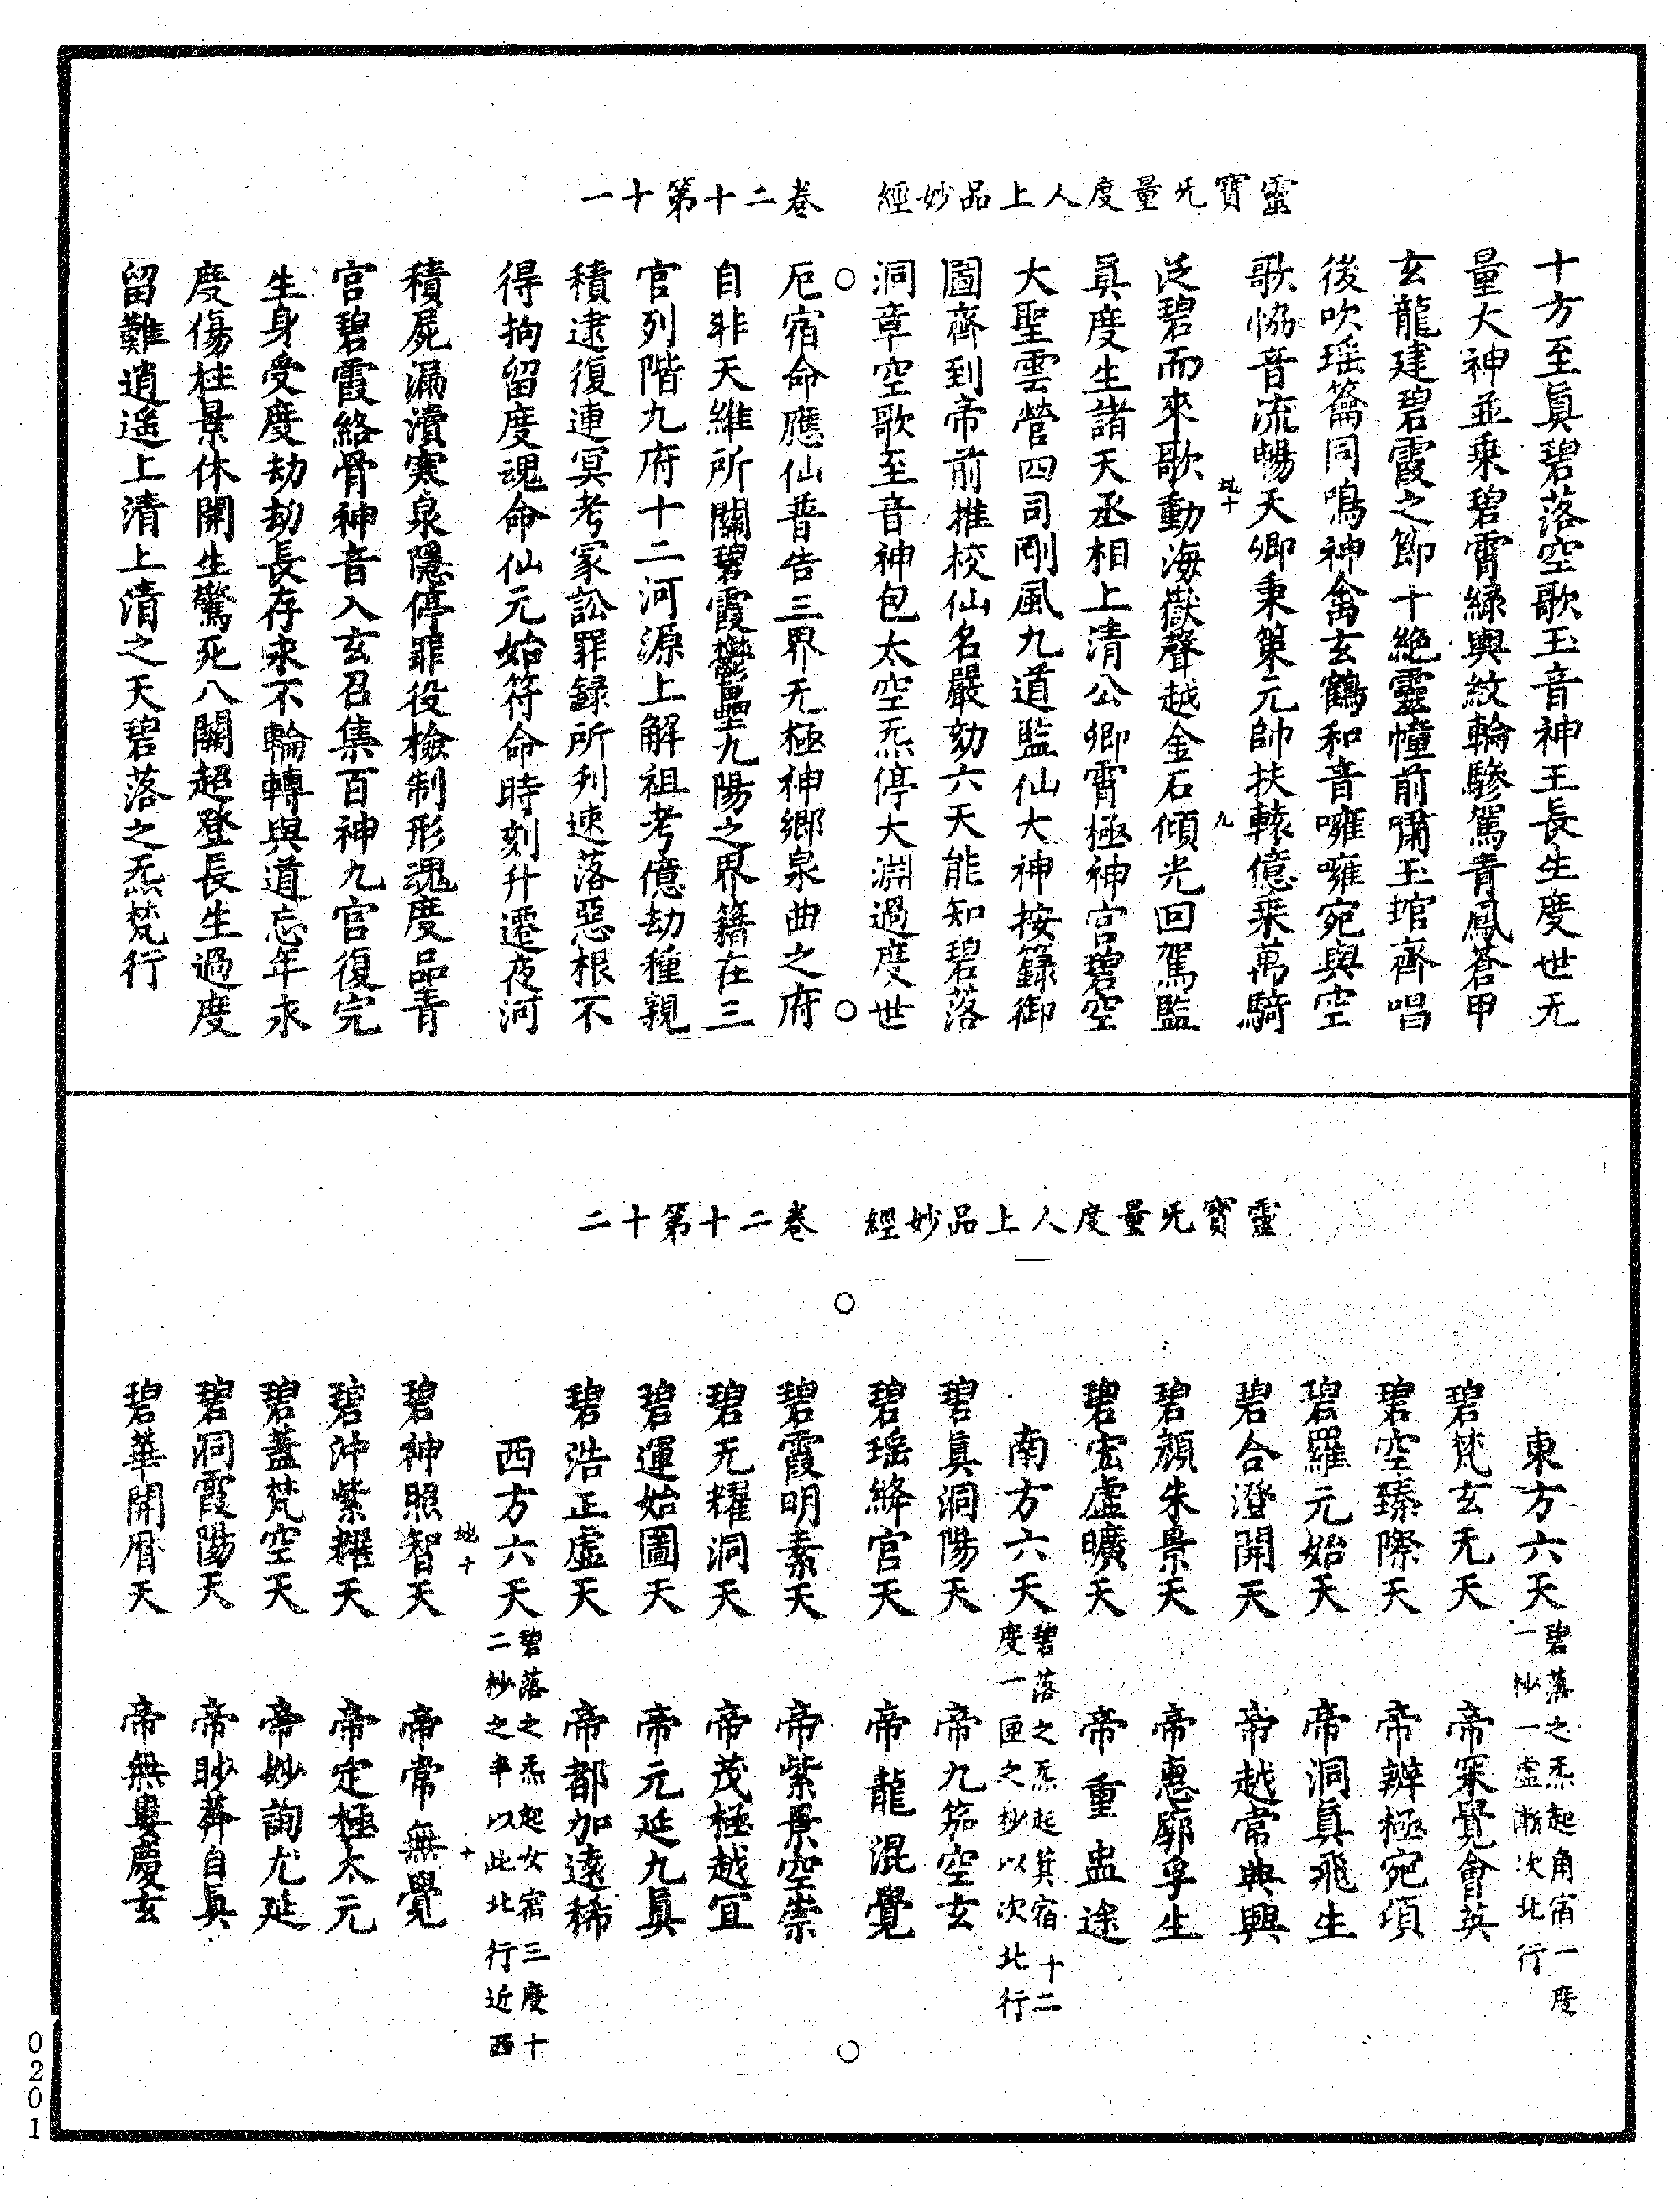 靈寶旡量度人上品妙經　卷二十第十一
十方至眞碧落空歌玉音神王長生度世无
量大神並乗碧霄緑輿紋輪驂駕青鳳蒼甲
玄龍建碧霞之節十絶靈幢前嘯玉琯齊唱
後吹瑶籥同鳴神禽玄鶴和音嗈嗈宛與空
歌恊音流暢天卿秉籙元帥扶轅億乗萬騎
地十　九
泛碧而來歌動海嶽聲越金石傾光回駕監
眞度生諸天丞相上清公卿霄極神宫碧空
大聖雲營四司剛風九道監仙大神按籙御
圖齊到帝前推校仙名嚴劾六天能知碧落
洞章空歌至音神包太空炁停大淵過度世
厄宿命應仙普告三界无極神鄉泉曲之府
自非天維所關碧霞鬱壘九陽之界籍在三
官列階九府十二河源上解祖考億劫種親
積逮復連冥考冢訟罪録所刋速落惡根不
得拘留度魂命仙元始符命時刻升遷夜河
積屍漏瀆寒泉隱停罪役檢制形魂度品青
宫碧霞絡骨神音入玄召集百神九宫復完
生身受度劫劫長存永不輪轉與道忘年永
度傷柱景休開生驚死八關超登長生過度
留難逍遥上清上清之天碧落之炁梵行
靈寶旡量度人上品妙經　卷二十第十二
東方六天碧落之炁起角宿一度一杪一虚漸次北行
碧梵玄无天　帝冞覺會英
碧空臻際天　帝辨極宛項
碧羅元始天　帝洞眞飛生
碧合澄開天　帝越常典興
碧顔朱景天　帝惠廓孚生
碧宏虚曠天　帝重盅途
南方六天碧落之炁起箕宿十二度一匝之杪以次北行
碧眞洞陽天　帝九笳空玄
碧瑶絳官天　帝龍混覺
碧霞明素天　帝紫景空崇
碧无耀洞天　帝茂極越冝
碧運始圖天　帝元延九眞
碧浩正虚天　帝都加遠稀
西方六天碧落之炁起女宿三度十二杪之半以此北行近西
地十　十
碧神照智天　帝常無覺
碧沖紫耀天　帝定極太元
碧蓋梵空天　帝妙詢尤延
碧洞霞陽天　帝眇莽自眞
碧華開眉天　帝無舋慶玄
0201